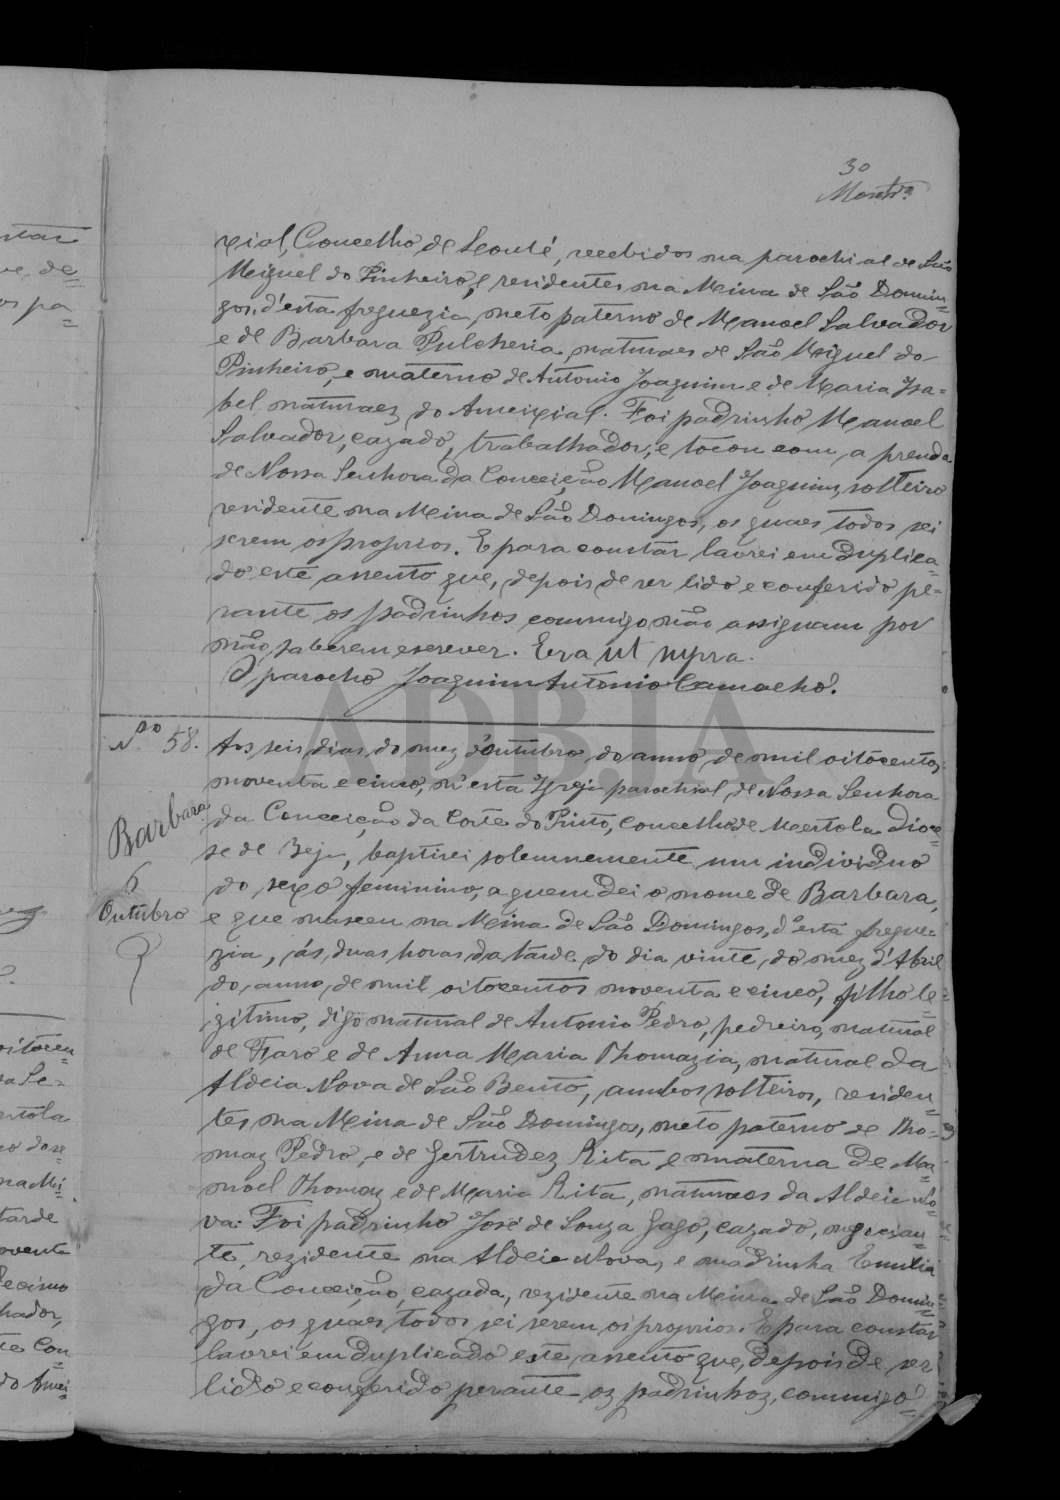 30
xial, Concelho de Loulé, recebidos na parochial de São
Miguel do Pinheiro, e residentes na Meina de São Domin=
gos, d'esta freguezia, neto paterno de Manoel Salvador
e de Barbara Pulcheria naturaes de São Miguel do
Pinheiro, e materno de Antonio Joaquim e de Maria Iza=
bel naturaez do Ameixial. Foi padrinho Manoel
Salvador, cazado, trabalhador, e tocou com a prenda
de Nossa Senhora da Conceição Manoel Joaquim, solteiro
residente na Meina de São Domingos, os quaes todos sei
serem os proprios. E para constar lavrei em duplica=
do este assento que, depois de ser lido e conferido pe=
rante os padrinhos commigo não assignam por
não saberem escrever. Era ut supra.
O parocho Joaquim Antonio Camacho.
N.º 58.
Barbara
6
Outubro
Aos seis dias do mez d'Outubro do anno de mil oitocentos
noventa e cinco, n'esta Igreja parochial de Nossa Senhora
da Conceição da Corte do Pinto, Concelho de Mertola Dioce=
se de Beja, baptisei solemnemente um individuo
do sexo feminino, a quem dei o nome de Barbara,
e que nasceu na Meina de São Domingos, d'esta fregue=
zia, ás duas horas da tarde do dia vinte do mez d'Abril
do anno de mil oitocentos noventa e cinco, filho le=
gitimo, digo natural de Antonio Pedro, pedreiro, natural
de Faro e de Anna Maria Thomazia, natural da
Aldeia Nova de São Bento, ambos solteiros, residen=
tes na Meina de São Domingos, neto paterno de Tho=
maz Pedro, e de Gertrudez Rita e materna de Ma=
noel Thomaz e de Maria Rita, naturaes da Aldeia No=
va. Foi padrinho José de Souza Gago, cazado, negocian=
te, rezidente na Aldeia Nova, e madrinha Emilia
da Conceição, cazada, rezidente na Meina de São Domin=
gos, os quaes todos sei serem os proprios. E para constar
lavrei em duplicado este assento que, depois de ser
lido e conferido perante os padrinhos, commigo=
ADBJA